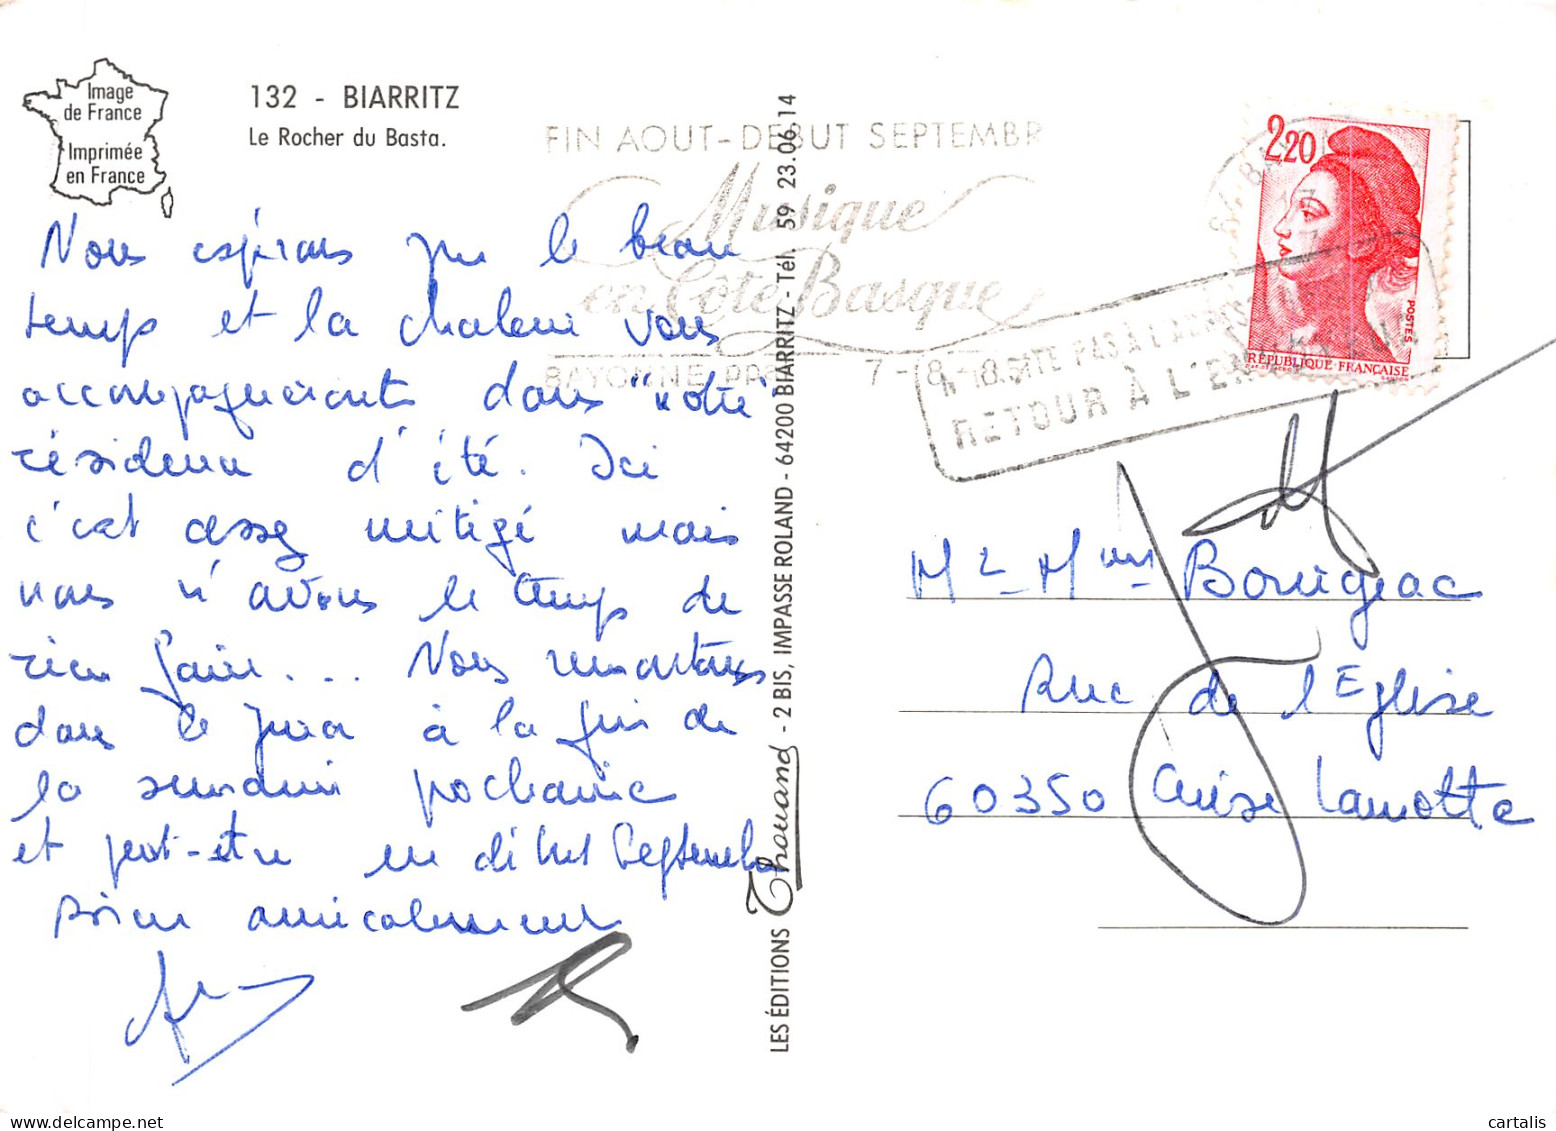 Image
de France
Imprimée
en France
132 - BIARRITZ
Le Rocher du Basta.
FIN AOUT-DEBUT SEPTEMBR
Musique
en Côte Basque
BAYONNE PPAL 7-8-8
N'HABITE PAS À L'ADRESSE
RETOUR À L'ENVOYEUR
2,20
POSTES
RÉPUBLIQUE FRANÇAISE
Nous espérons que le beau
temps et la chaleur vous
accompagneront dans "votre"
résidence d'été. Ici
c'est assez mitigé mais
nous n'avons le temps de
rien faire... Nous remontons
dans le Jura à la fin de
la semaine prochaine
et peut-être en début Septembre
Bien amicalement
LES ÉDITIONS Thouand - 2 BIS, IMPASSE ROLAND - 64200 BIARRITZ - Tél. 59 23.06.14
Mr - Mme Bourigeac
Rue de l'Eglise
60350 Cuise Lamotte
cartalis